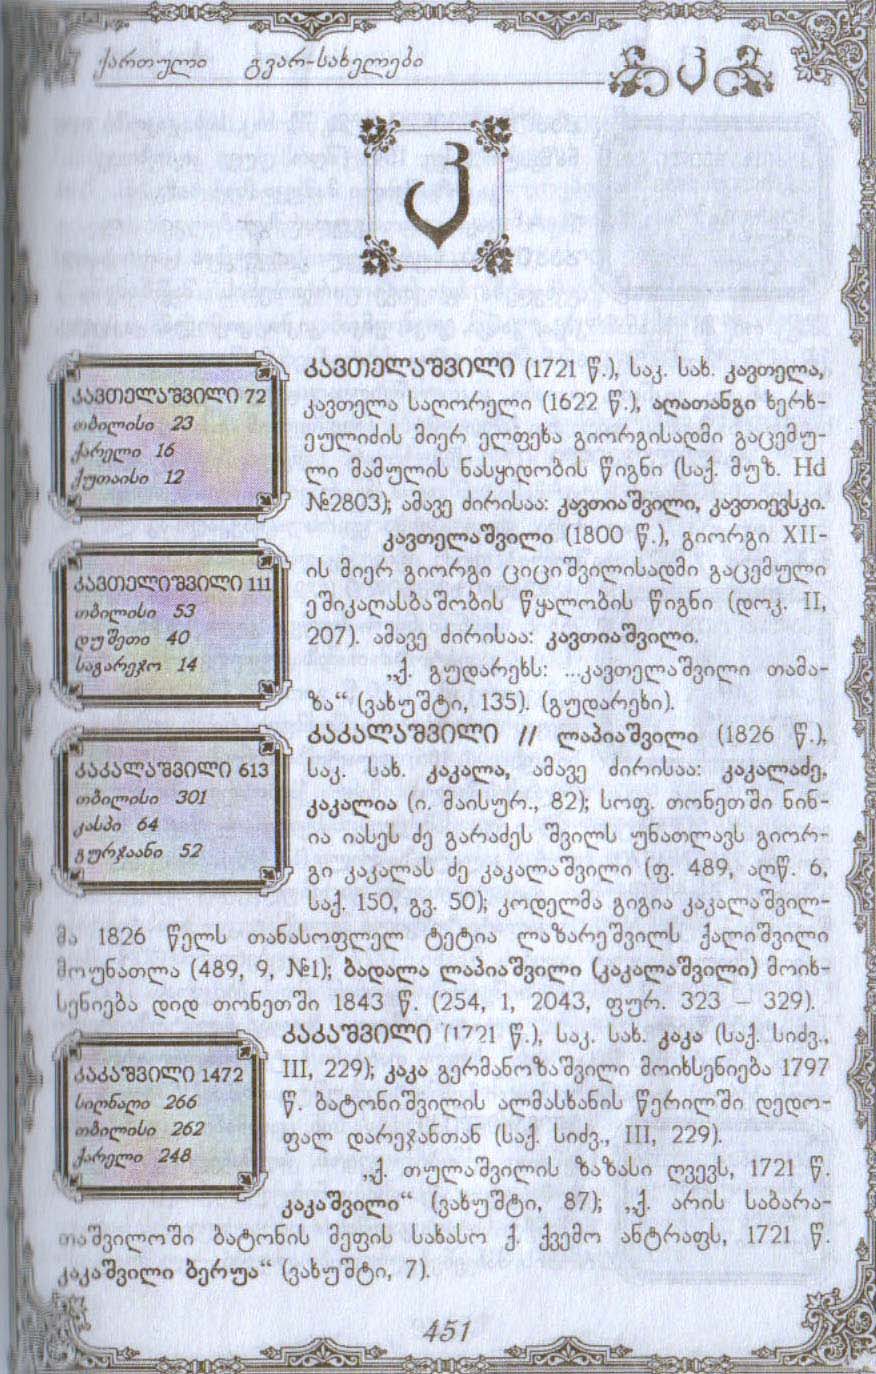 ქართული გვარ-სახელები
კ
კ
კავთელაშვილი 72
თბილისი 23
ქარელი 16
ქუთაისი 12
კავთელაშვილი (1721 წ.), საკ. სახ. კავთელა,
კავთელა საღორელი (1622 წ.), აღათანგი ხერხ-
ეულიძის მიერ ელფეხა გიორგისადმი გაცემუ-
ლი მამულის ნასყიდობის წიგნი (საქ. მუზ. Hd
№2803); ამავე ძირისაა: კავთიაშვილი, კავთიევსკი.
კავთელაშვილი (1800 წ.), გიორგი XII-
ის მიერ გიორგი ციციშვილისადმი გაცემული
ეშიკაღასბაშობის წყალობის წიგნი (დოკ. II,
207). ამავე ძირისაა: კავთიაშვილი.
„ქ. გუდარეხს: ...კავთელაშვილი თამა-
ზა“ (ვახუშტი, 135). (გუდარეხი).
კავთელიშვილი 111
თბილისი 53
დუშეთი 40
საგარეჯო 14
კაკალაშვილი 613
თბილისი 301
კასპი 64
გურჯაანი 52
კაკალაშვილი // ლაპიაშვილი (1826 წ.),
საკ. სახ. კაკალა, ამავე ძირისაა: კაკალაძე,
კაკალია (ი. მაისურ., 82); სოფ. თონეთში ნინ-
ია იასეს ძე გარაძეს შვილს უნათლავს გიორ-
გი კაკალას ძე კაკალაშვილი (ფ. 489, აღწ. 6,
საქ. 150, გვ. 50); კოდელმა გიგია კაკალაშვილ-
მა 1826 წელს თანასოფლელ ტეტია ლაზარეშვილს ქალიშვილი
მოუნათლა (489, 9, №1); ბადალა ლაპიაშვილი (კაკალაშვილი) მოიხ-
სენიება დიდ თონეთში 1843 წ. (254, 1, 2043, ფურ. 323 – 329).
კაკაშვილი 1472
სიღნაღი 266
თბილისი 262
ქარელი 248
კაკაშვილი (1721 წ.), საკ. სახ. კაკა (საქ. სიძვ.,
III, 229); კაკა გერმანოზაშვილი მოიხსენიება 1797
წ. ბატონიშვილის ალმასხანის წერილში დედო-
ფალ დარეჯანთან (საქ. სიძვ., III, 229).
„ქ. თულაშვილის ზაზასი ღვევს, 1721 წ.
კაკაშვილი“ (ვახუშტი, 87); „ქ. არის საბარა-
თაშვილოში ბატონის მეფის სახასო ქ. ქვემო ანტრაფს, 1721 წ.
კაკაშვილი ბერუა“ (ვახუშტი, 7).
451